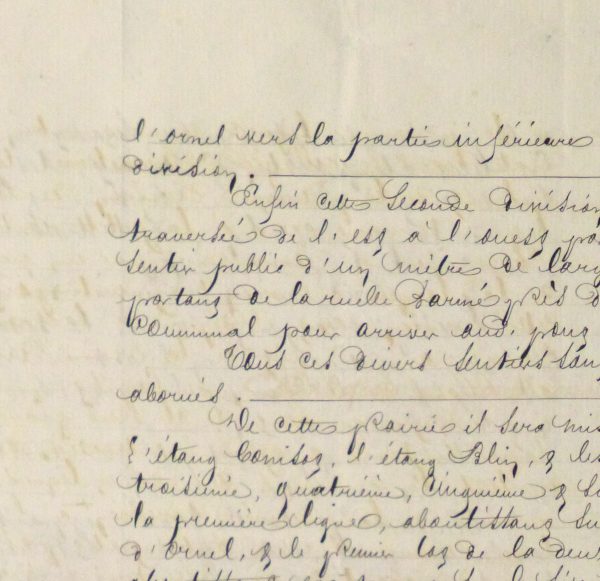 l'ornel vers la partie inférieure
division.
Enfin cette Seconde Division
traversée de l'est à l'ouest pa
sentier public d'un mètre de larg
partant de la ruelle Darmé près d
Communal pour arriver aud. pont
Tous ces divers sentiers sont
abornés.
De cette prairie il sera mis
l'étang l'étang Blin, & les
troisième, quatrième, cinquième & s
la première ligne, aboutissant su
d'Ornel, & le premier lot de la deux